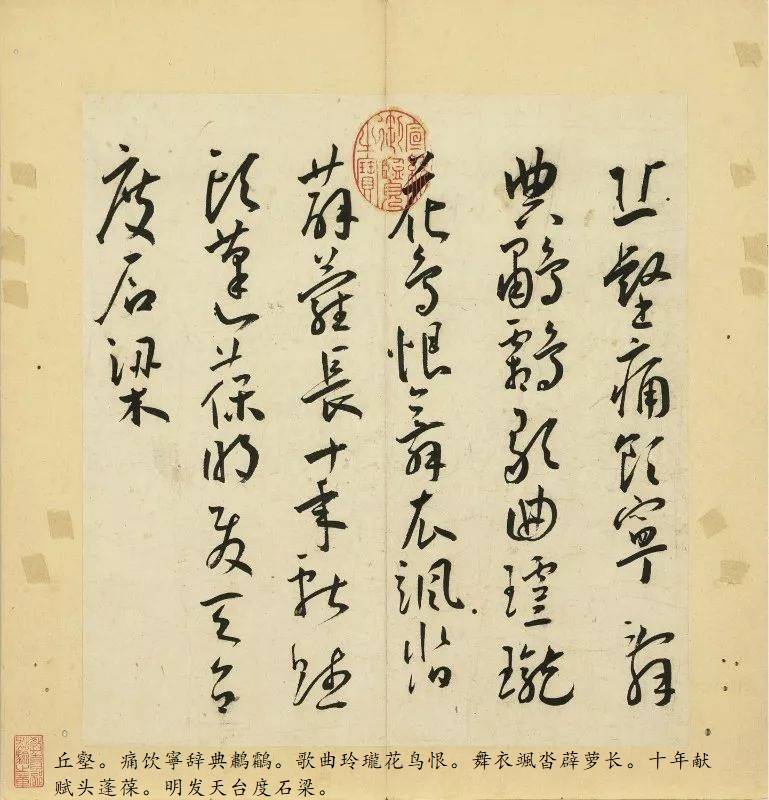 丘壑痛飲寧辭
典鷫鸘歌曲玲瓏
花鳥恨舞衣颯沓
薜蘿長十年獻賦
頭蓬葆明發天台
度石梁
丘壑。痛饮寧辞典鹔鹴。歌曲玲瓏花鸟恨。舞衣飒沓薜萝长。十年献
赋头蓬葆。明发天台度石梁。